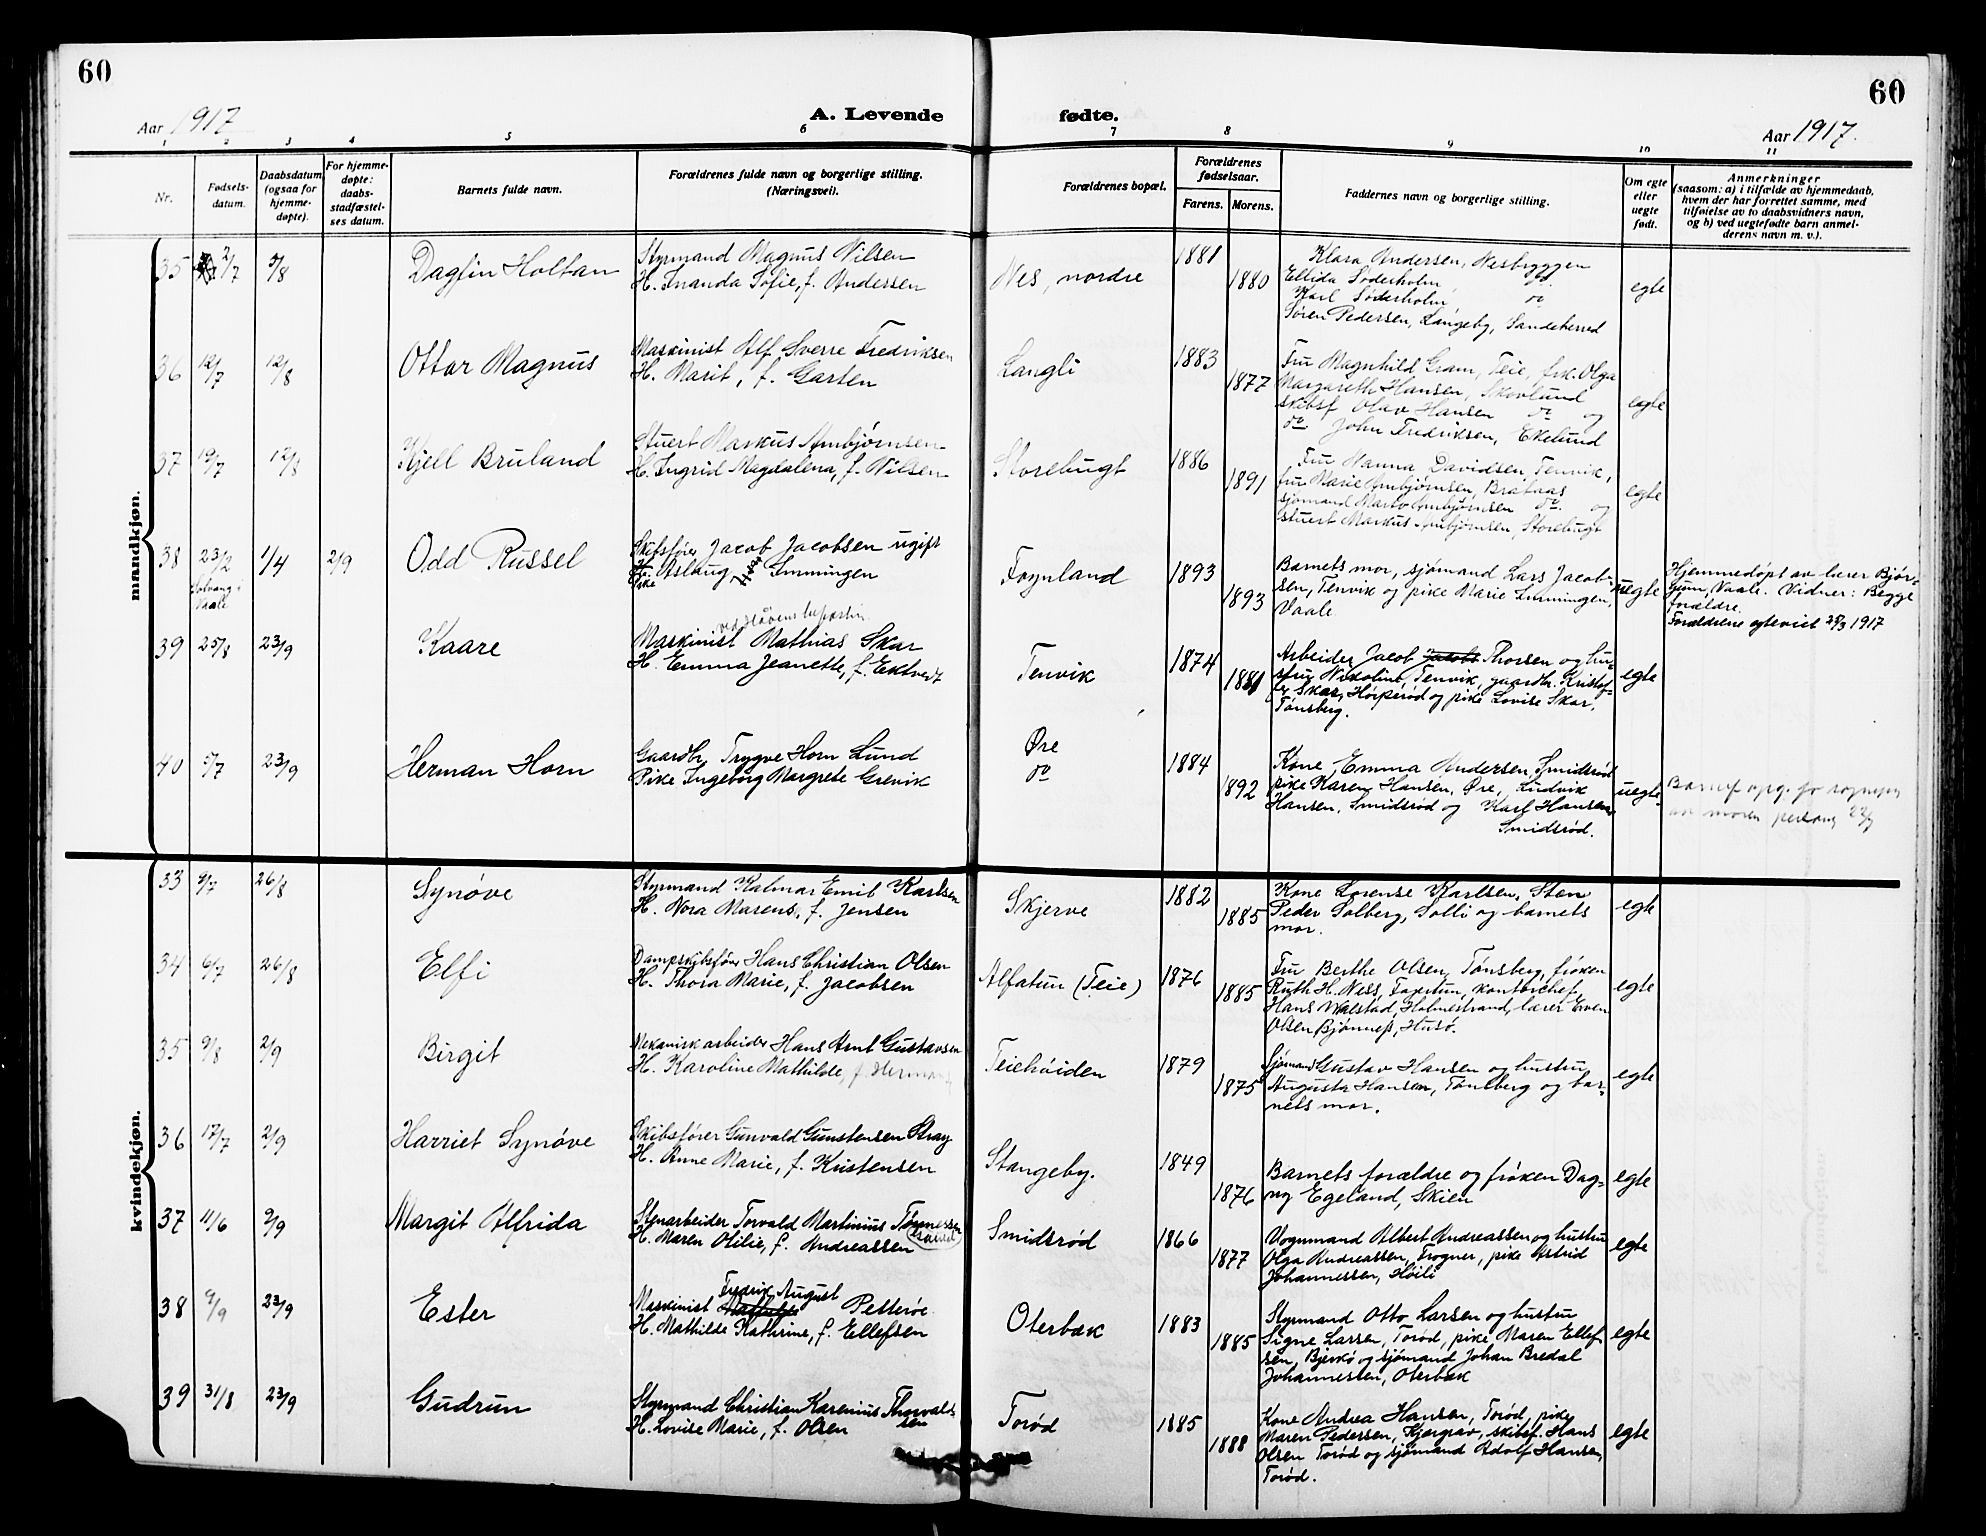 60
60
Aar 1917
A. Levende
fødte.
Aar 1917.
1 2 3 4 5 6 7 8 9 10 11
Nr.
Fødsels-
datum.
Daabsdatum
(ogsaa for
hjemme-
døpte).
For hjemme-
døpte:
daabs-
stadfæstel-
ses datum.
Barnets fulde navn.
Forældrenes fulde navn og borgerlige stilling.
(Næringsvei).
Forældrenes bopæl.
Forældrenes
fødselsaar.
Farens. Morens.
Faddernes navn og borgerlige stilling.
Om egte
eller
uegte
født.
Anmerkninger
(saasom: a) i tilfælde av hjemmedaab,
hvem der har forrettet samme, med
tilføielse av to daabsvidners navn,
og b) ved uegtefødte barn anmel-
derens navn m. v.).
mandkjøn.
35 2/7 5/8 Dagfin Holtan
Styrmand Magnus Nilsen
H. Inanda Sofie, f. Andersen
Nes, nordre
1881
1880
Klara Andersen, Nesbryggen
Ellida Söderholm do
Karl Söderholm do
Søren Pedersen, Langeby, Sandeherred
egte
36 12/7 12/8 Ottar Magnus
Maskinist Alf Sverre Fredriksen
H. Marit, f. Garten
Langli
1883
1877
Fru Magnhild Gram, Teie, frk. Olga
Margareth Hansen, Skovlund
skibsf. Olav Hansen do og
do John Fredriksen, Ekelund
egte
37 19/7 12/8 Kjell Bruland
Stuert Markus Arnbjørnsen
H. Ingrid Magdalena, f. Nilsen
Storebugt
1886
1891
Fru Hanna Davidsen, Tenvik,
fru Marie Arnbjørnsen, Bråtaas
sjømand Martv Arnbjørnsen do og
stuert Markus Arnbjørnsen, Storebugt
egte
38 23/2 1/4 2/9 Odd Russel
Solvang i
Vaale
Skibsfører Jacob Jacobsen ugift
Pike Aslaug Immingen
Føynland
1893
1893
Barnets mor, sjømand Lars Jacob-
sen, Tenvik og pike Marie Immingen,
Vaale
uegte
Hjemmedøpt av lærer Bjør-
gum, Vaale. Vidner: Begge
forældre.
Forældrene egteviet 25/3 1917
39 25/8 23/9 Kaare
Maskinist Mathias Skar
H. Emma Jeanette, f. Ektvedt
Tenvik
1874
1881
Arbeider Jacob Jacobs Thorsen og hu-
stru Nikoline, Tenvik, gaardbr. Kristof-
fer Skar, Horperød og pike Lovise Skar,
Tønsberg.
egte
40 5/7 23/9 Herman Horn
Gaardbr. Trygve Horn Lund
Pike Ingeborg Margrete Grevik
Øre
do
1884
1892
Kone Emma Andersen, Smidsrød
pike Karen Hansen, Øre, Ludvik
Hansen, Smidsrød og Karl Hansen,
Smidsrød.
uegte
kvindekjøn.
33 9/7 26/8 Synøve
Styrmand Kalmar Emil Karlsen
H. Nora Marens, f. Jensen
Skjerve
1882
1885
Kone Lorense Karlsen, Sten
Peder Solberg, Solli og barnets
mor.
egte
34 6/7 26/8 Elfi
Dampskibsfører Hans Christian Olsen
H. Thora Marie, f. Jacobsen
Alfatun (Teie)
1876
1885
Fru Berthe Olsen, Tønsberg, frøken
Ruth H. Ness, Foxetun, kontorchef
Hans Walstad, Holmestrand, lærer Even
Olsen Bjønnes, Husø.
egte
35 9/8 2/9 Birgit
Mekanisk arbeider Hans Arnt Gustavsen
H. Karoline Mathilde
Teiehøiden
1879
1875
Sjømand Gustav Hansen og hustru
Augusta Hansen, Tønsberg og bar-
nets mor.
egte
36 17/7 2/9 Harriet Synøve
Skibsfører Gunvald Gunstensen Stray
H. Anne Marie, f. Kristensen
Stangeby.
1849
1876
Barnets forældre og frøken Dag-
ny Egeland, Skien
egte
37 11/6 9/9 Margit Alfrida
Stenarbeider Torvald Martinius Tønnessen
H. Maren Otilie, f. Andreassen
Smidsrød
1866
1877
Vognmand Albert Andreassen og hustru
Olga Andreassen, Trogner, pike Astrid
Johannessen, Høili
egte
38 9/9 23/9 Ester
Fredrik August
Maskinist Mathilde Petterøe
H. Mathilde Kathrine, f. Ellefsen
Oterbæk
1883
1885
Styrmand Otto Larsen og hustru
Signe Larsen, Torød, pike Maren Ellef-
sen, Bjerkø og sjømand Johan Bredal
Johannessen, Oterbæk
egte
39 31/8 23/9 Gudrun
Styrmand Christian Karenius Thorvald-
sen
H. Lovise Marie, f. Olsen
Torød
1885
1888
Kone Andrea Hansen, Torød, pike
Maren Pedersen, Kjørgrav, skibsf. Hans
Olsen Torød og sjømand Adolf Hansen,
Torød.
egte